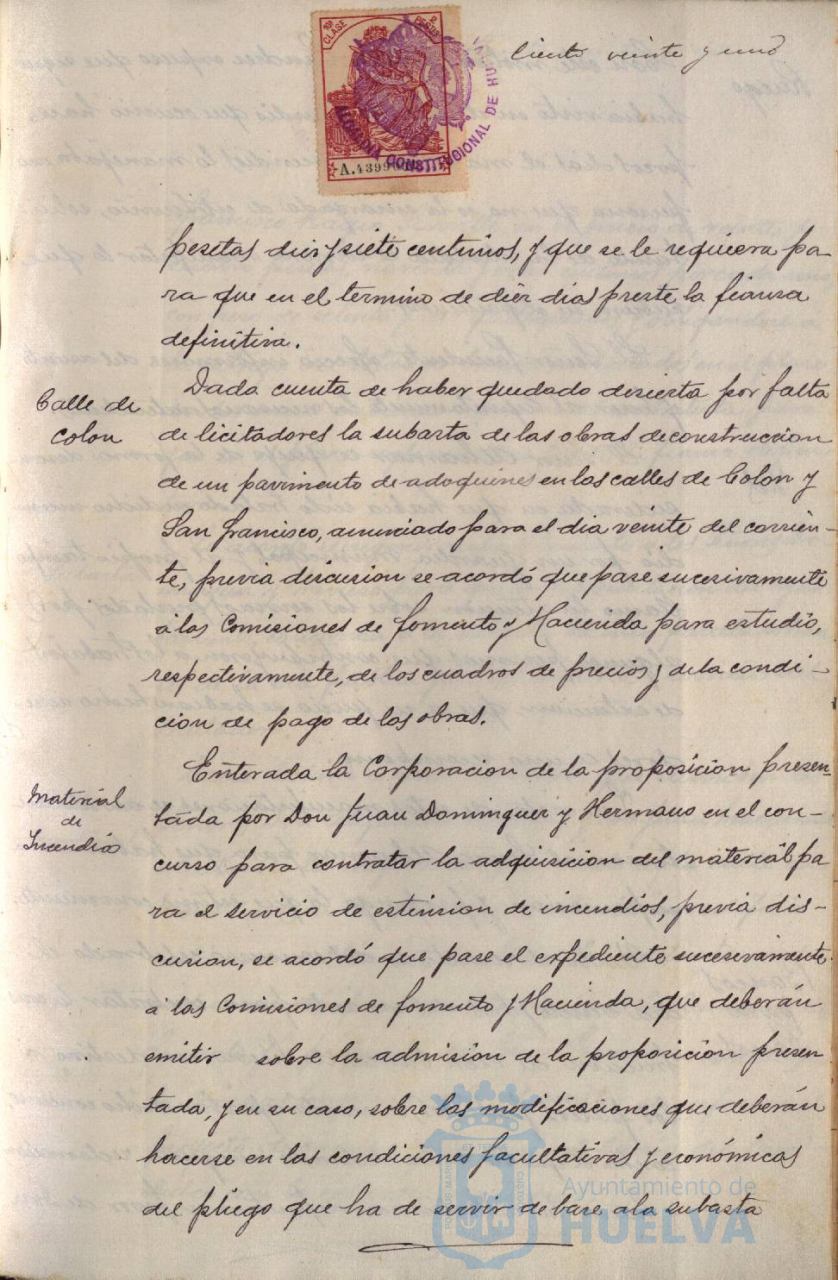 Ciento veinte y uno
10ª CLASE
2 PESETAS
ALCALDIA CONSTITUCIONAL DE HUELVA
A.4399
pesetas diez y siete centimos, y que se le requiera pa-
ra que en el termino de diez dias preste la fianza
definitiva.
Calle de
Colon
Dada cuenta de haber quedado desierta por falta
de licitadores la subasta de las obras de construccion
de un pavimento de adoquines en las calles de Colon y
San Francisco, anunciado para el dia veinte del corrien-
te, previa discusion se acordó que pase sucesivamente
á las Comisiones de Fomento y Hacienda para estudio,
respectivamente, de los cuadros de precios y de la condi-
cion de pago de las obras.
Material
de
Incendios
Enterada la Corporacion de la proposicion presen-
tada por Don Juan Dominguez y Hermano en el con-
curso para contratar la adquisicion del material pa
ra el servicio de estension de incendios, previa dis-
cusion, se acordó que pase el expediente sucesivamente
á las Comisiones de Fomento y Hacienda, que deberán
emitir sobre la admision de la proposicion presen-
tada, y en su caso, sobre las modificaciones que deberán
hacerse en las condiciones facultativas y económicas
del pliego que ha de servir de base a la subasta
Ayuntamiento de
HUELVA